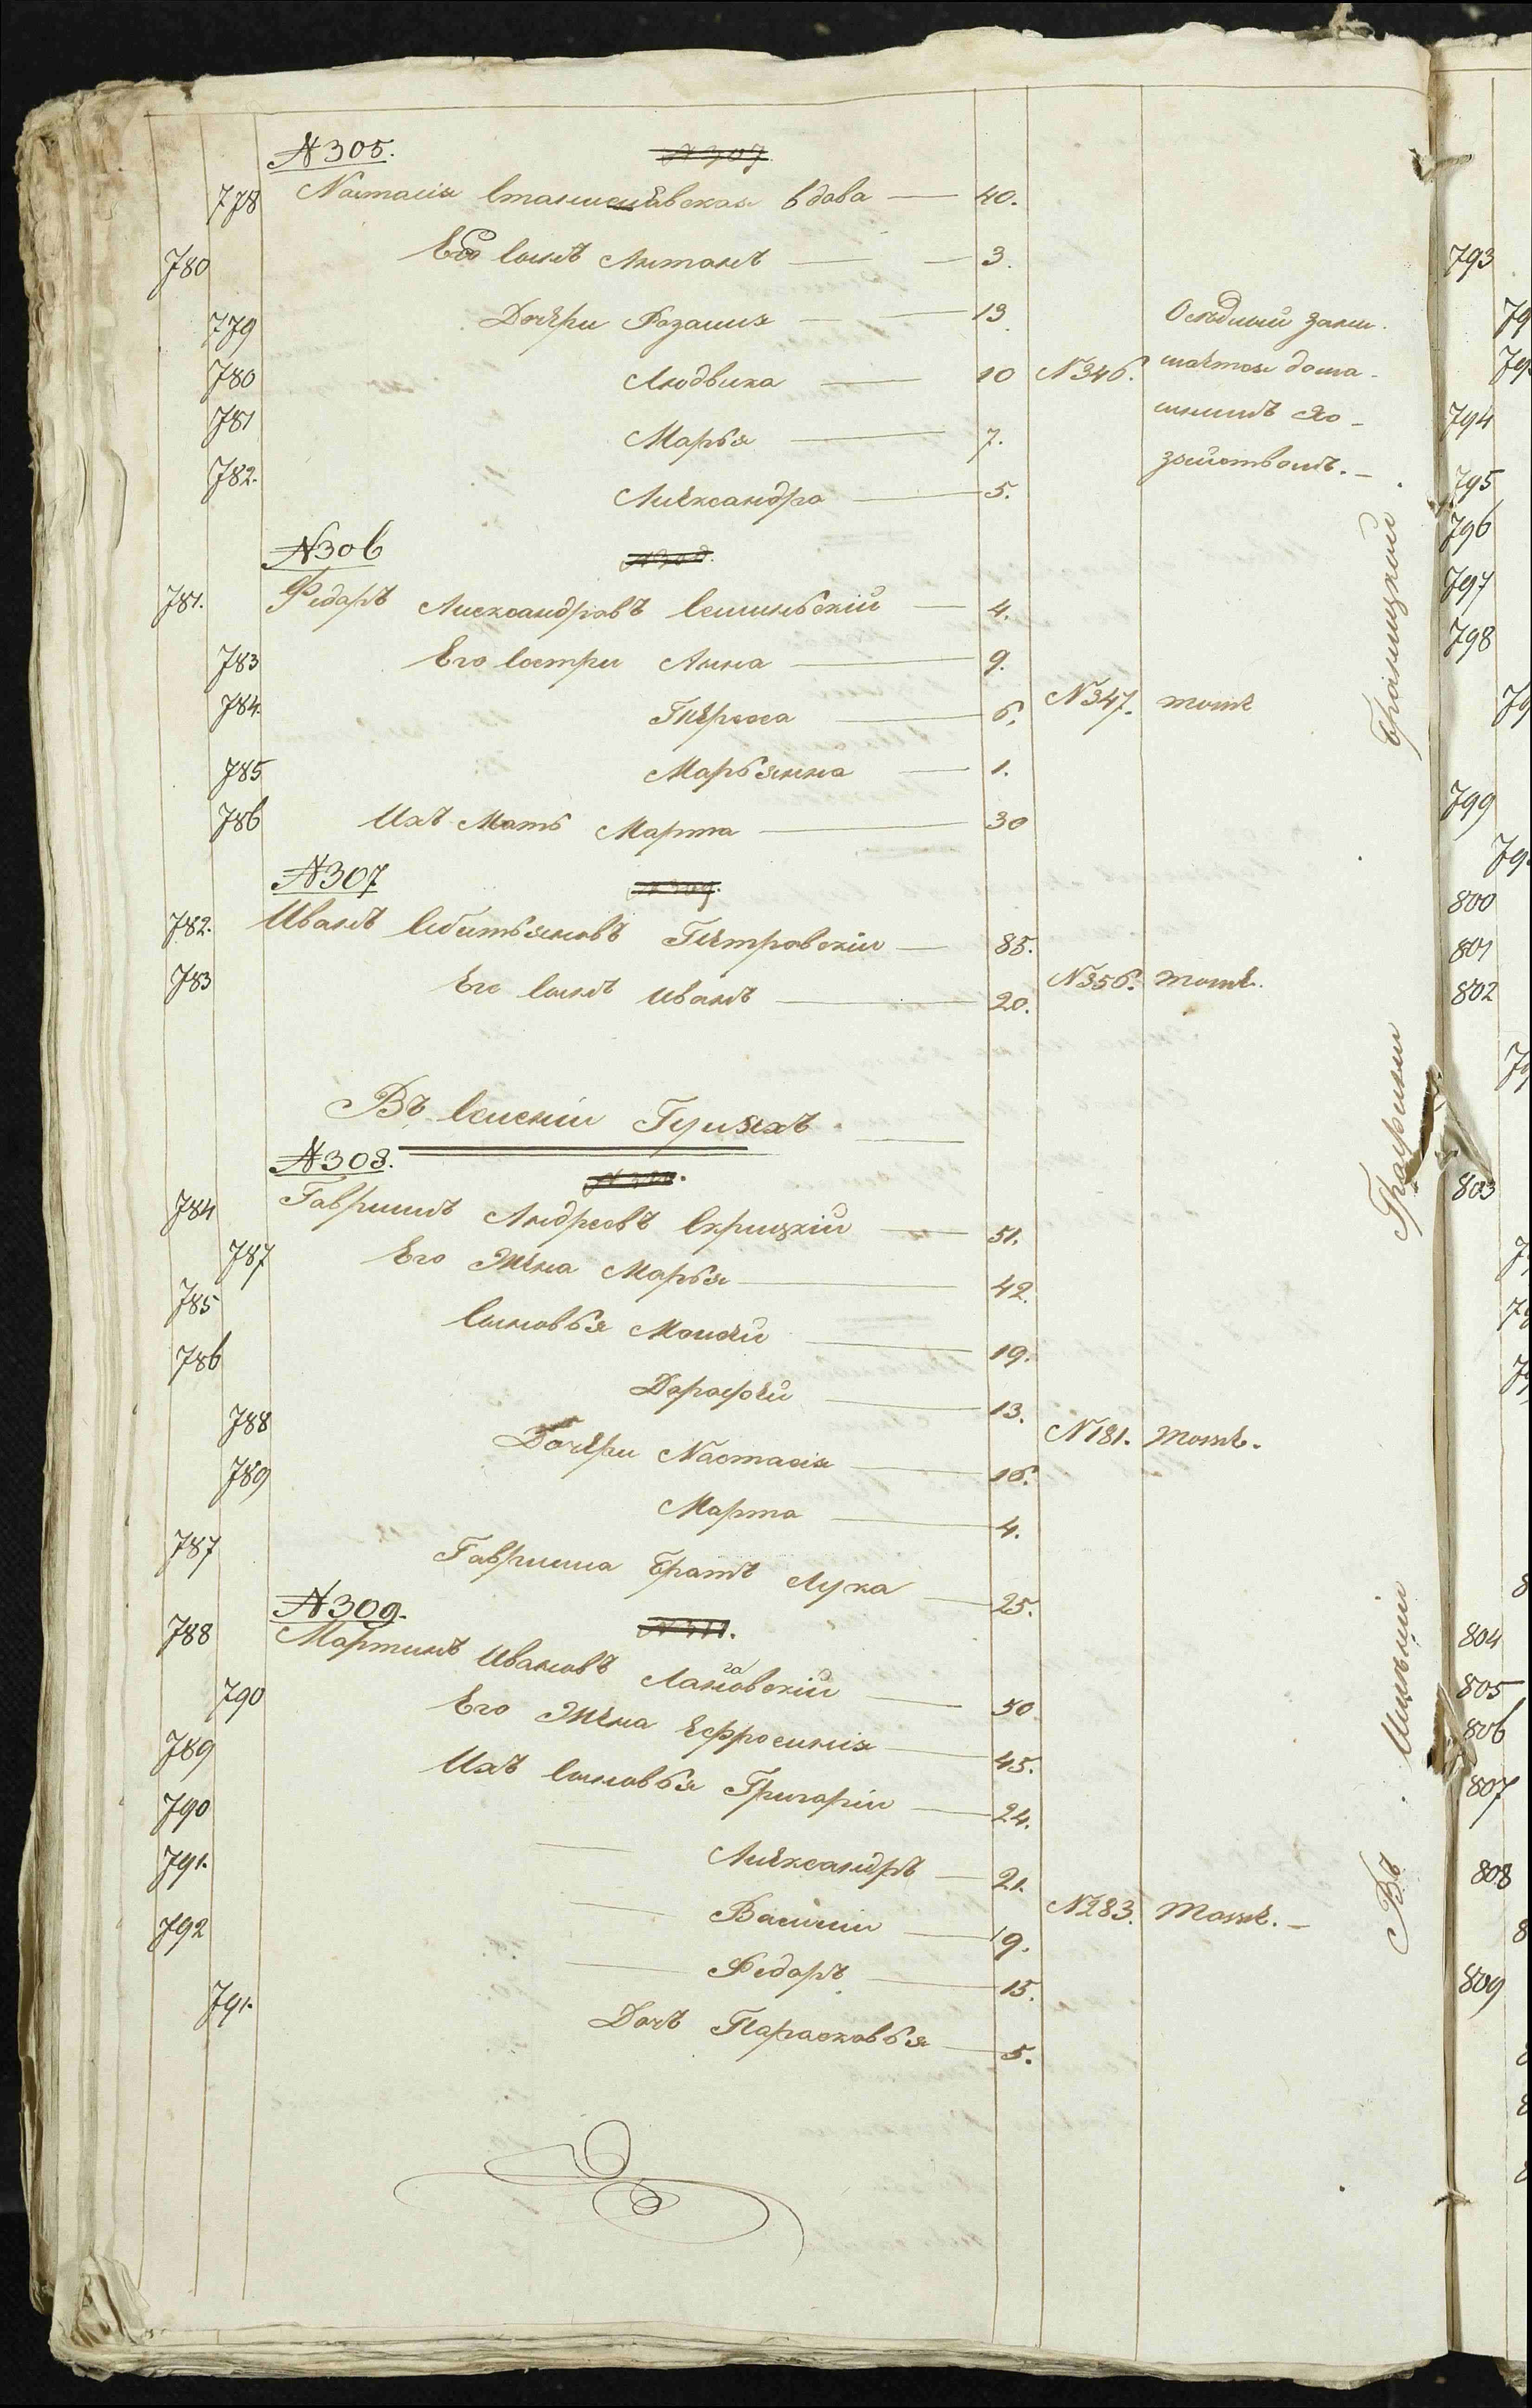 №305. №307.
778 Настасія Станиславская вдова — 40.
780 Ее Сынъ Антонъ — 3.
779 Дочери Розалия — 13 Осѣдлый зани-
780 Людвика — 10 №346. мается дома-
781 Марья — 7. шнимъ хо-
782. Александра — 5. зяйствомъ.
№306 №308.
781. Федоръ Александровъ — 4.
783 Его Сестри Анна — 9.
784. Тереса — 6. №347. тоже
785 Марьянна — 1.
786 Ихъ Мать Марта — 30
№307 №309.
782. Иванъ Петровскій — 85.
783 Его Сынъ Иванъ — 20. №356. тоже.
Въ Селеніи Гуляхъ
№308. №310.
784 Гаврилъ Андреевъ Скрицкій — 51.
787 Его Жена Марья — 42.
785 Сыновья Моисей — 19.
786 Дорофей — 13.
788 Дочери Настасія — 16. №181. тоже.
789 Марта — 4.
787 Гаврила братъ Лука — 25.
№309. №311.
788 Мартинъ Ивановъ — 50
790 Его Жена Ефросинія — 45.
789 Ихъ Сыновья Григорій — 24.
790 Александръ — 21.
791. Василій — 19. №283. тоже.
792 Федоръ — 15.
791. Дочь Парасковья — 5.
Въ Имѣніи Графини Браницкой
793
794
795
796
797
798
799
800
801
802
803
804
805
806
807
808
809